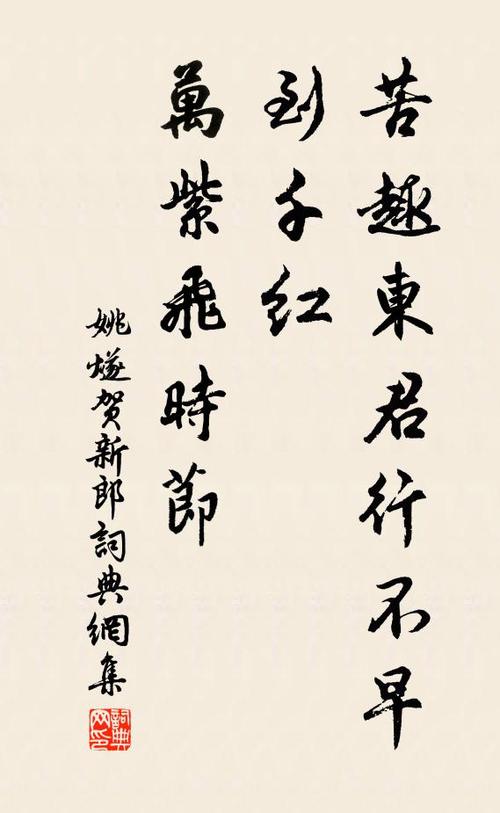 苦趣東君行不早
到千紅
萬紫飛時節
姚燧賀新郎詞典網集
詞典網印